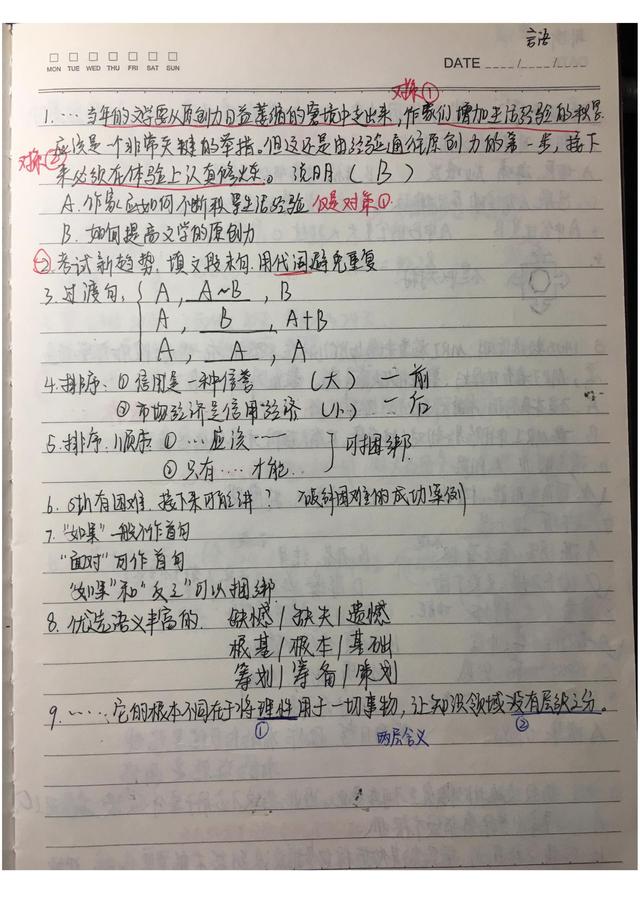 言语
MON TUE WED THU FRI SAT SUN
DATE
对策①
1.…当年的文学要从原创力日益萎缩的窘境中走出来,作家们增加生活经验的积累
应该是一个非常关键的举措。但这还是由经验通往原创力的第一步,接下
对策②
来必须在体验上认真修炼。 说明(B)
A.作家应如何不断积累生活经验 仅是对策①
B.如何提高文学的原创力
2.考试新趋势,填文段末句,用代词避免重复
3.过渡句, A, A~B, B
A, B, A+B
A, A, A
4.排序,①信用是一种信誉 (大) 一前
②市场经济是信用经济 (小) 二后
5.排序,顺序 ①…应该……
②只有…才能… 可捆绑
6.纵有困难,接下来可能讲? 破解困难的成功案例
7."如果"一般不作首句
"面对"可作首句
"如果"和"反之"可以捆绑
8.优先语义丰富的. 缺憾|缺失|遗憾
根基|根本|基础
筹划|筹备|策划
9.……它的根本不同在于将理性用于一切事物,让知识领域没有层级之分。
① 两层含义 ②